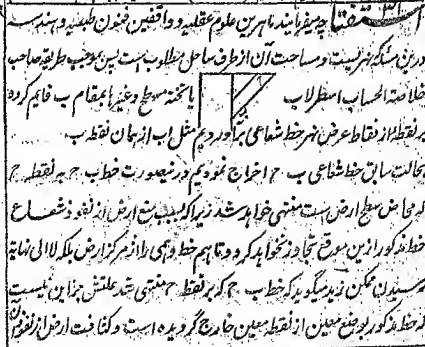 استفتا چه میفرمایند ماهرین علوم عقلیه و واقفین فنون طبیعیه و هندسیه
درین مسئله که نهریست و مساحت آن از طرف ساحل مطلوب است پس بموجب طریقه صاحب
خلاصة الحساب اسطرلاب یا تخته مسطح وغیرا بمقام ب قایم کرده
بر نقطه از نقاط عرض نهر خط شعاعی برآوردیم مثل اب از همان نقطه ب
بحالت سابق خط شعاعی ب ج اخراج نمودیم درینصورت خط ب ج بر نقطه ج
که محاض سطح ارض است منتهی خواهد شد زیرا که بسبب منع ارض از نفوذ شعاع
خط مذکور ازین موقع تجاوز نخواهد کرد و تا هم خط وهمی را از مرکز ارض بلکه لا الی نهایة
رسیدن ممکن زید میگوید که خط ب ج که بر نقطه ج منتهی شد علتش جز این نیست
که خط مذکور بوضع معین از نقطه معین خارج گردیده است و کثافت ارض از نفوذش